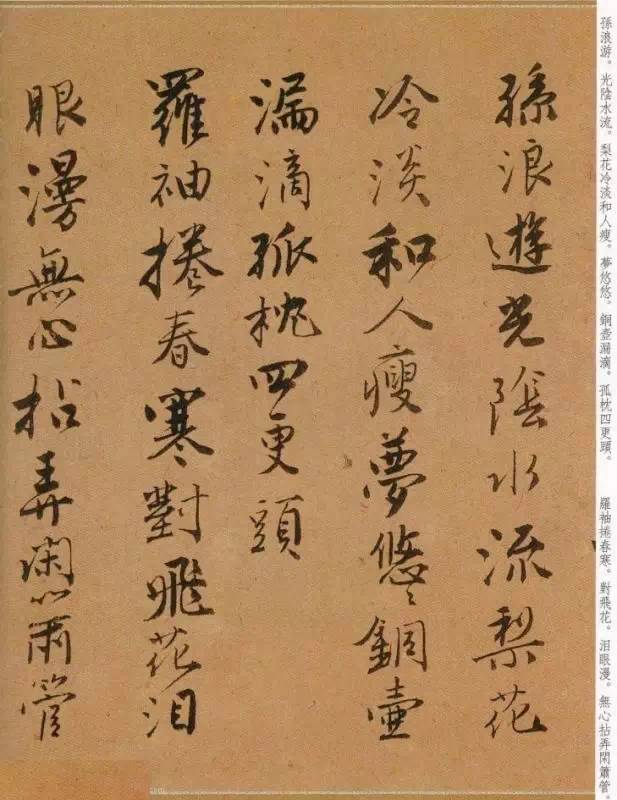 孫浪遊光陰水流梨花
冷淡和人瘦夢悠〻銅壺
漏滴孤枕四更頭
羅袖捲春寒對飛花泪
眼漫無心拈弄闲簫管
孫浪游。光陰水流。梨花冷淡和人瘦。夢悠悠。銅壺漏滴。孤枕四更頭。
羅袖捲春寒。對飛花。泪眼漫。無心拈弄閑簫管。